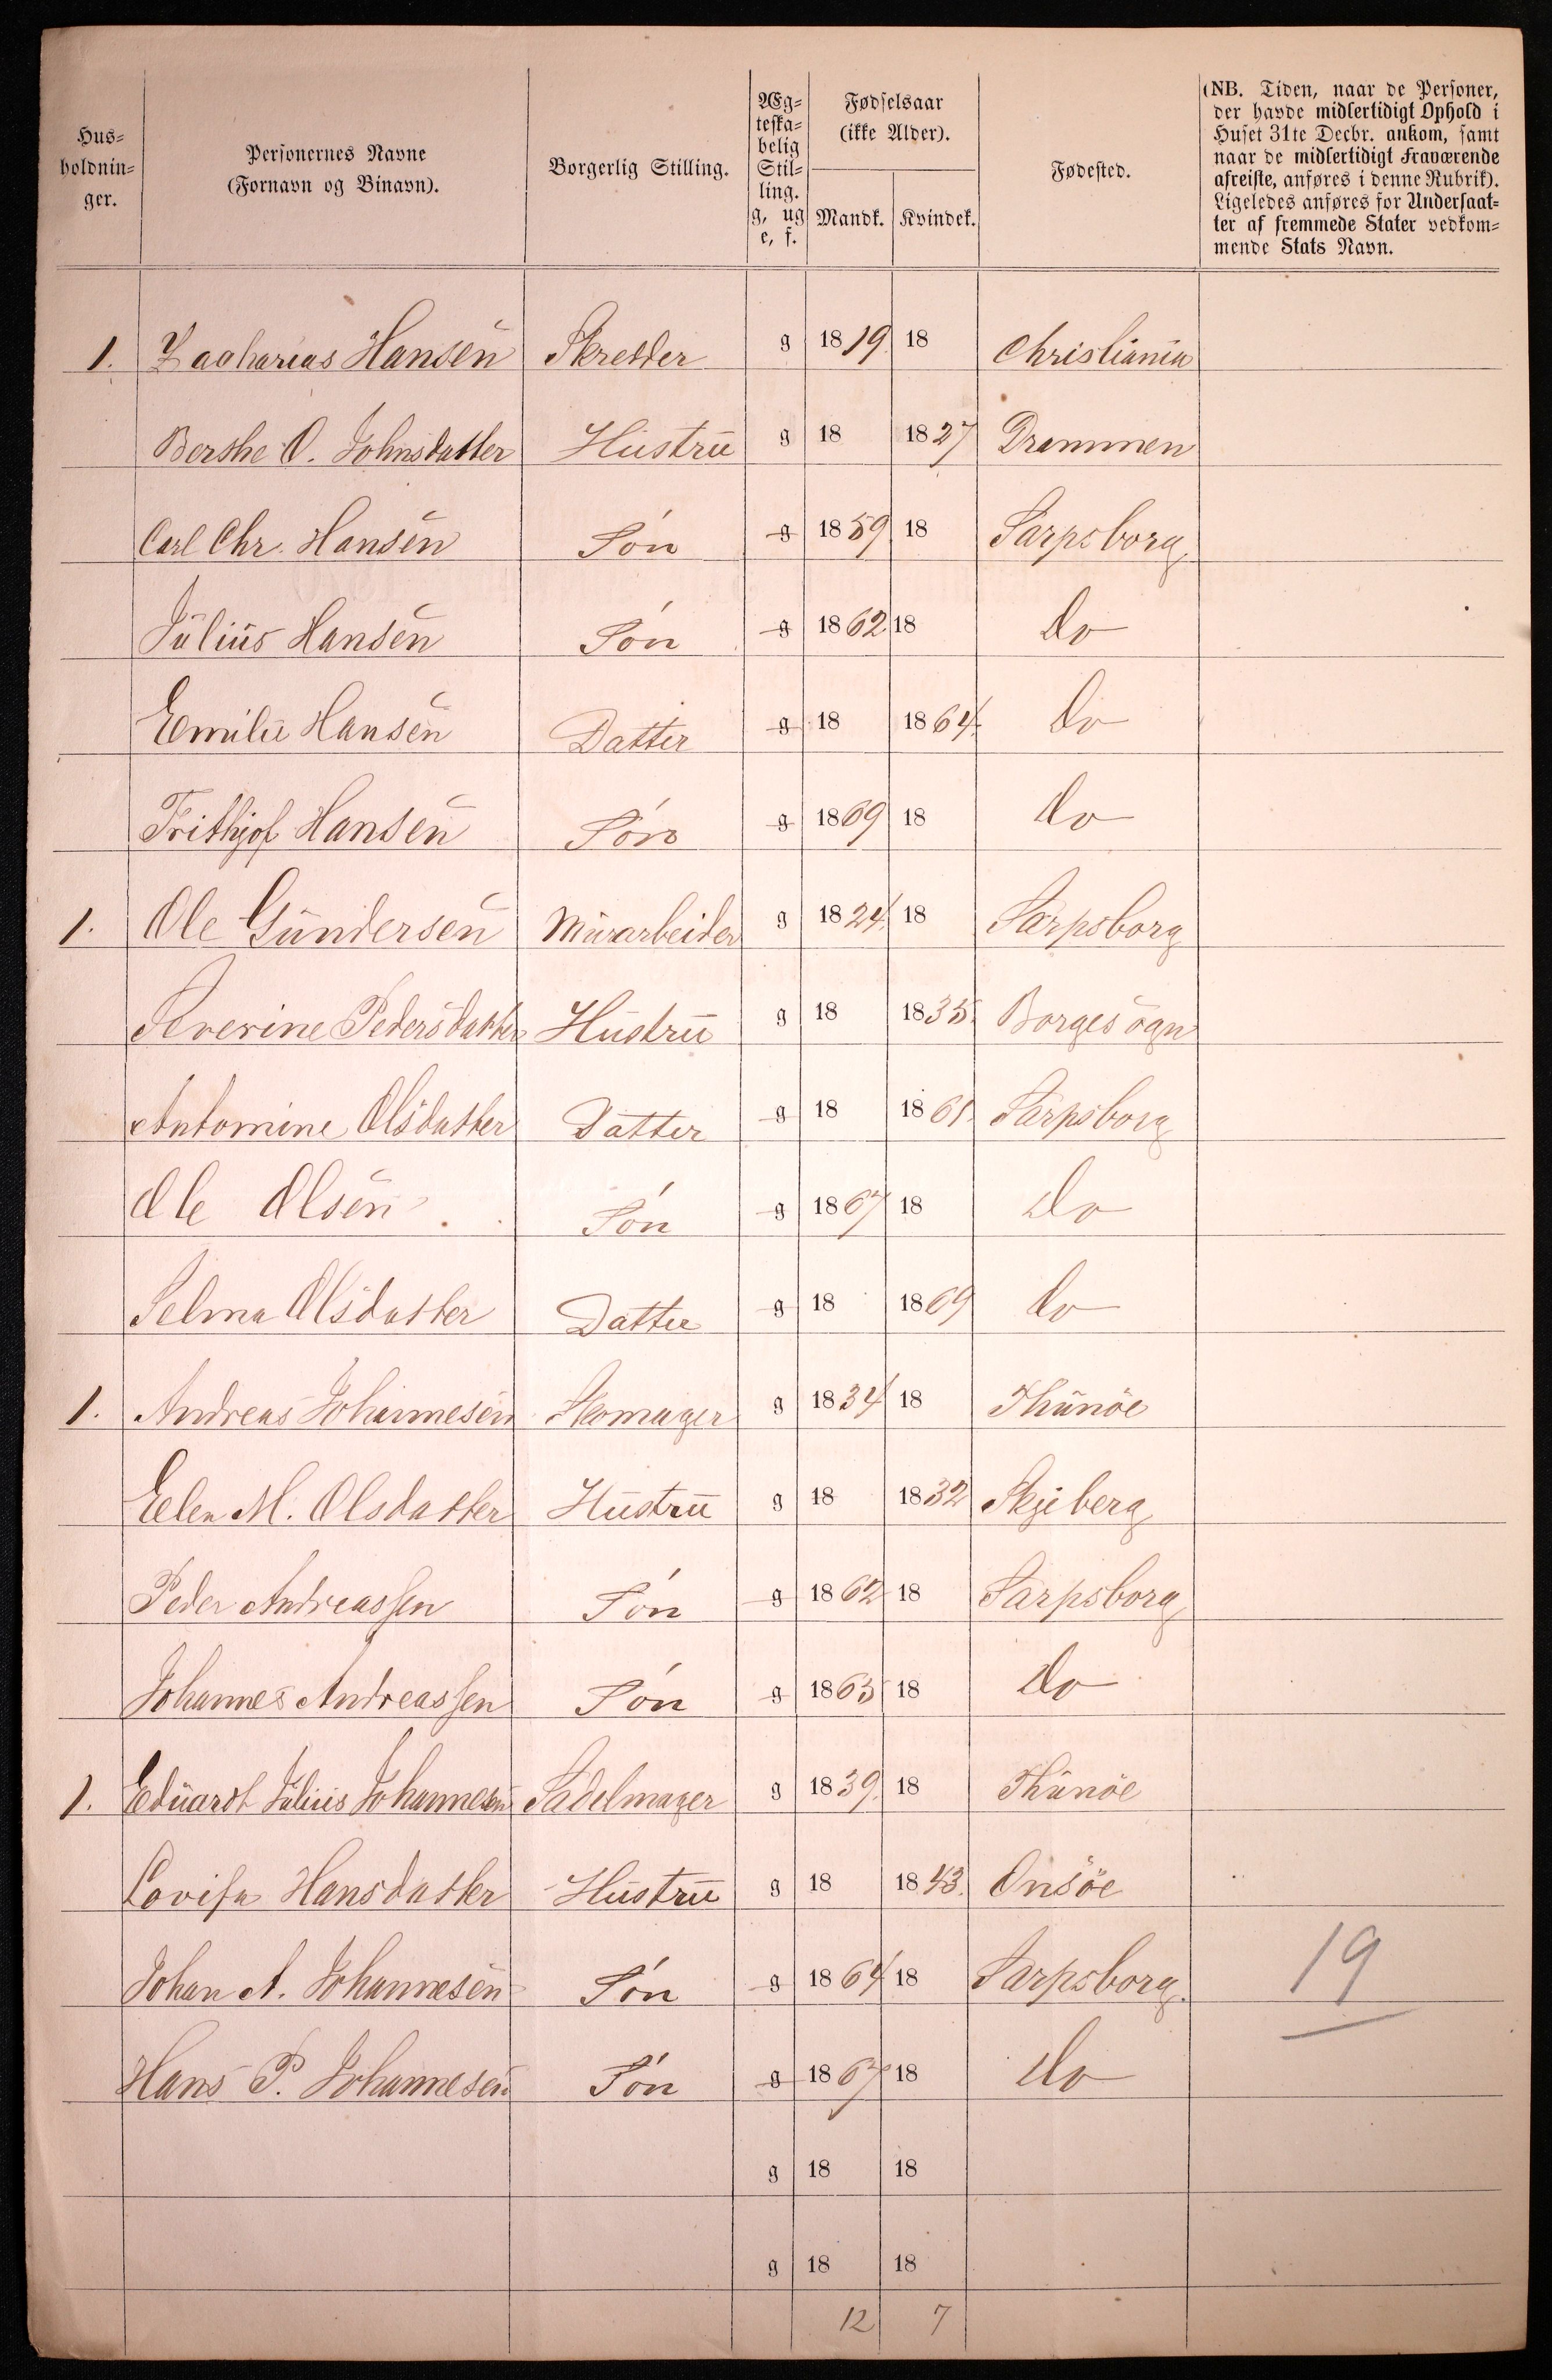 Hus-
holdnin-
ger.
Personernes Navne
(Fornavn og Binavn).
Borgerlig Stilling.
Æg-
teska-
belig
Stil-
ling.
g, ug
e, f.
Fødselsaar
(ikke Alder).
Mandk. Kvindek.
Fødested.
(NB. Tiden, naar de Personer,
der havde midlertidigt Ophold i
Huset 31te Decbr. ankom, samt
naar de midlertidigt Fraværende
afreiste, anføres i denne Rubrik).
Ligeledes anføres for Undersaat-
ter af fremmede Stater vedkom-
mende Stats Navn.
1. Zacharias Hansen Skredder g 1819 18 Christiania
Berthe O. Johnsdatter Hustru g 18 1827 Drammen
Carl Chr. Hansen Søn g 1859 18 Sarpsborg
Julius Hansen Søn g 1862 18 Do
Emilie Hansen Datter g 18 1864 Do
Frithjof Hansen Søn g 1869 18 Do
1. Ole Gundersen Murarbeider g 1824 18 Sarpsborg
Severine Pedersdatter Hustru g 18 1835 Borgesogn
Antomine Olsdatter Datter g 18 1861 Sarpsborg
Ole Olsen Søn g 1867 18 Do
Selma Olsdatter Datter g 18 1869 Do
1. Andreas Johannesen Skomager g 1834 18 Thunöe
Eelen M. Olsdatter Hustru g 18 1832 Skjeberg
Peder Andreassen Søn g 1862 18 Sarpsborg
Johannes Andreassen Søn g 1865 18 Do
1. Eduardt Julius Johannesen Sadelmager g 1839 18 Thunöe
Lovisa Hansdatter Hustru g 18 1843 Onsöe
Johan A. Johannesen Søn g 1864 18 Sarpsborg. 19
Hans P. Johannesen Søn g 1867 18 Do
g 18 18
g 18 18
12 7